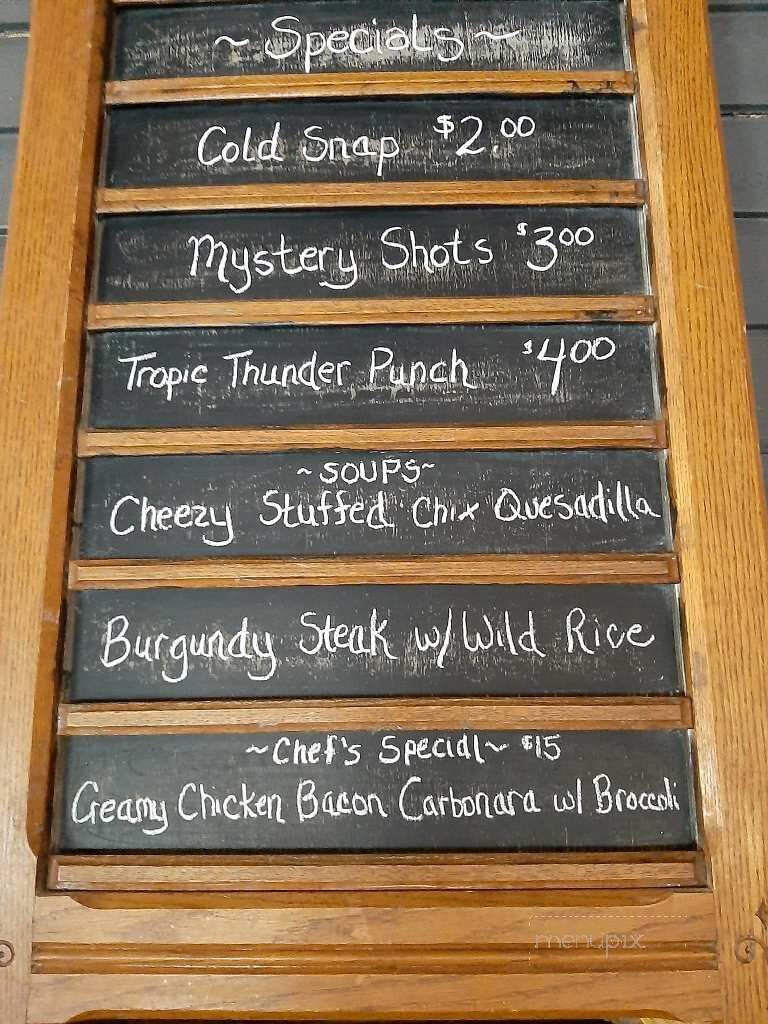 ~ Specials ~
Cold Snap $2.00
Mystery Shots $300
Tropic Thunder Punch $400
~SOUPS~
Cheezy Stuffed Chix Quesadilla
Burgundy Steak w/ Wild Rice
~Chef's Special~ $15
Creamy Chicken Bacon Carbonara w/ Broccoli
menupix